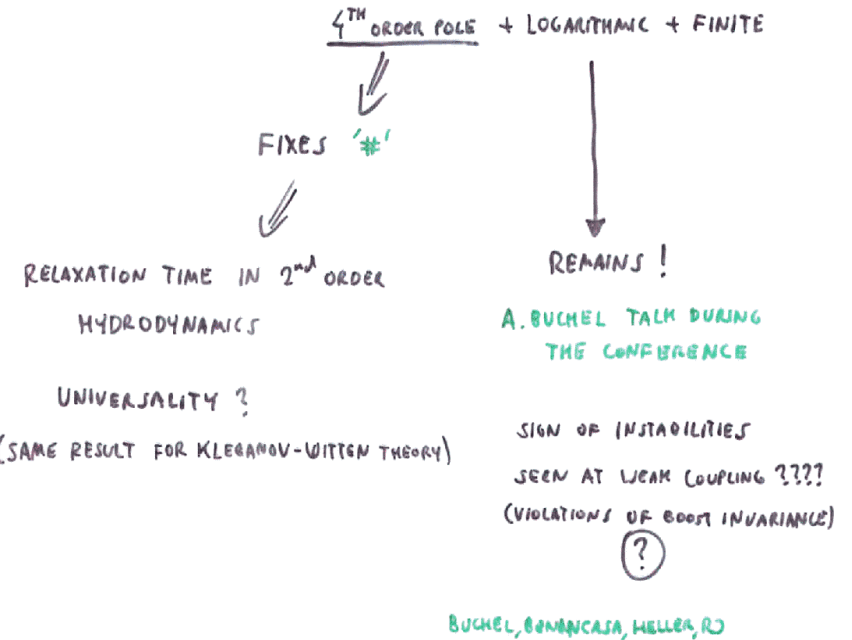 4TH ORDER POLE + LOGARITHMIC + FINITE
FIXES '#'
RELAXATION TIME IN 2nd ORDER
HYDRODYNAMICS
UNIVERSALITY ?
(SAME RESULT FOR KLEBANOV-WITTEN THEORY)
REMAINS !
A. BUCHEL TALK DURING
THE CONFERENCE
SIGN OF INSTABILITIES
SEEN AT WEAK COUPLING ????
(VIOLATIONS OF BOOST INVARIANCE)
?
BUCHEL, BENINCASA, HELLER, RJ